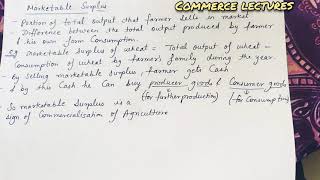 Marketable Surplus
COMMERCE LECTURES
- Portion of total output that farmer sells in market
Difference between the total output produced by farmer
& his own farm Consumption.
eg Marketable surplus of wheat = Total output of wheat -
Consumption of wheat by farmer's family during the year.
- by selling marketable surplus, farmer gets Cash
& by this Cash he Can buy producer goods & Consumer goods
(for further production) (for Consumption)
- So marketable surplus is a
sign of Commercialisation of Agriculture